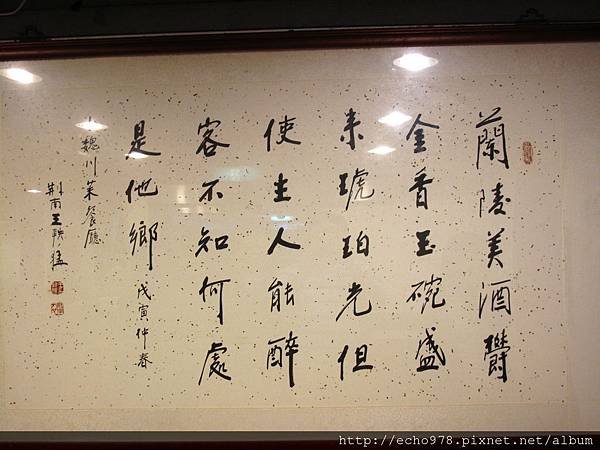 蘭陵美酒欝
金香玉碗盛
来琥珀光但
使主人能醉
客不知何處
是他鄉 戊寅仲春
小魏川菜餐廳
荆南王
http://echo978.pixnet.net/album